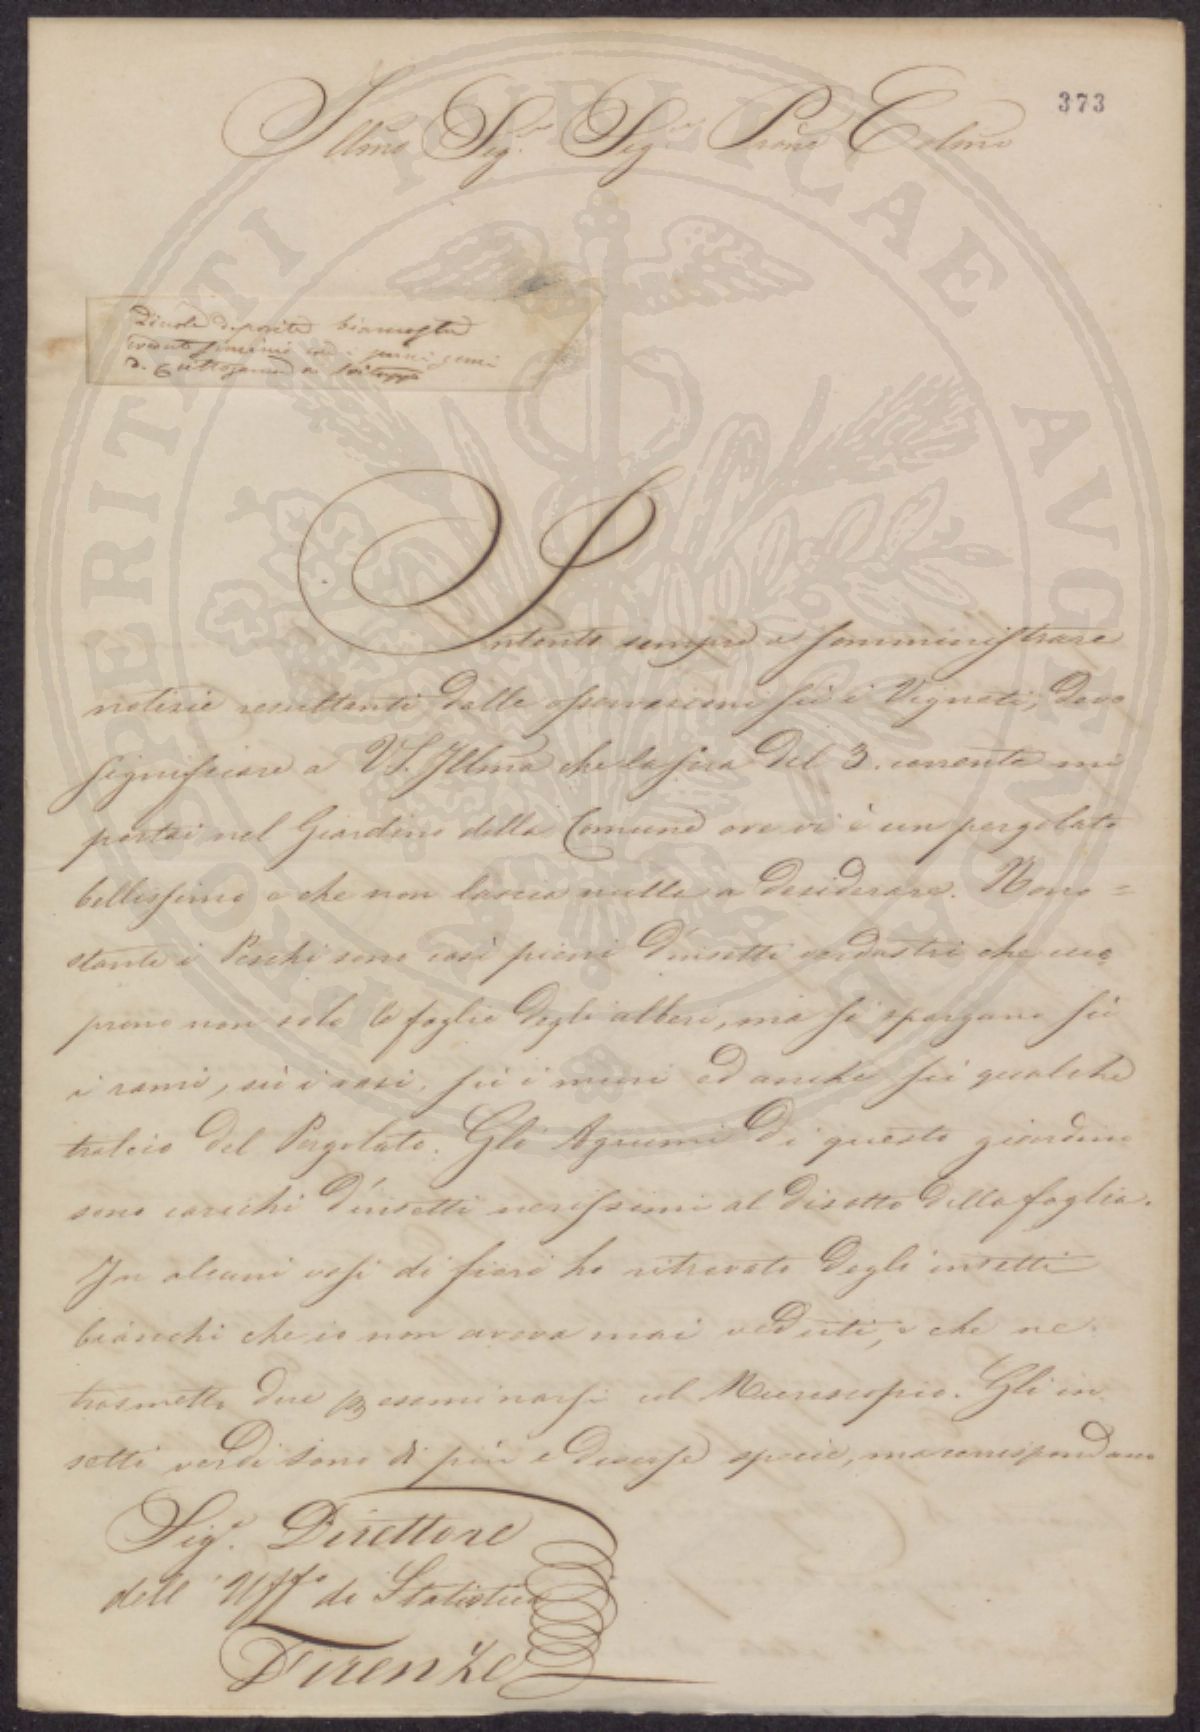 373
Illmo Sig.r Sig.r Prone Colmo
i primi germi
Intento sempre a somministrare
notizie resultanti dalle osservazioni sù i Vigneti, devo
significare a VS. Illma che la sera del 3. corrente mi
portai nel Giardino della Comune ove vi è un pergolato
bellissimo e che non lascia nulla a desiderare. Nono=
stante i Peschi sono così pieni d'insetti verdastri che cuo
prono non solo le foglie degli alberi, ma si spargano sù
i rami, sù i vasi, sù i muri ed anche sù qualche
tralcio del Pergolato. Gli Agrumi di questo giardino
sono carichi d'insetti nerissimi al disotto della foglia.
In alcuni vasi di fiori ho ritrovato degli insetti
bianchi che io non aveva mai veduti, e che ne
trasmetto due esaminarsi col Microscopio. Gli in
setti verdi sono di più e diverse specie, ma corrispondano
Sig.r Direttore
dell' Uff.o di Statistica
Firenze
PROSPERITATI PUBLICAE AVGENDAE